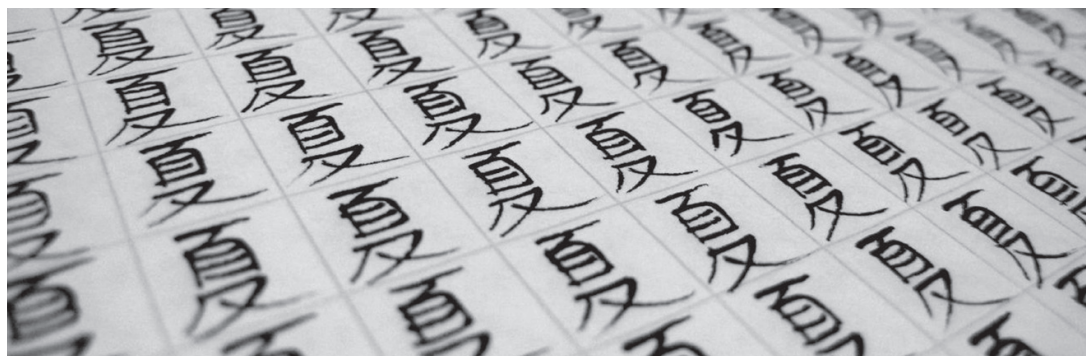 夏夏夏
夏夏夏夏夏
夏夏夏夏夏夏夏夏
夏夏夏夏夏夏夏夏夏夏
夏夏夏夏夏夏夏夏
夏夏夏夏